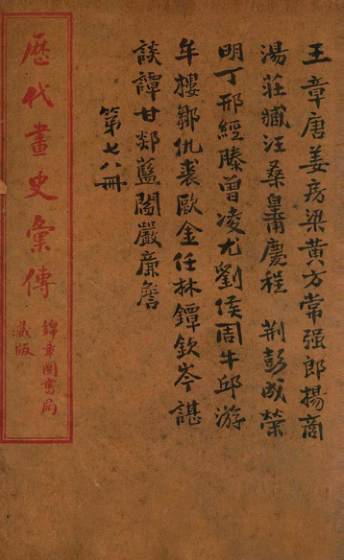 王章唐姜房梁黃方常强郎揚商
湯莊臧汪桑皇甫慶程 荆彭成榮
明丁邢經滕曾凌尤劉侯周牛邱游
牟樓鄒仇裘歐金任林鐔欽岑諶
談譚甘郯藍閻嚴亷詹
第七八冊
歷代畫史彙傳
錦章圖書局
藏版